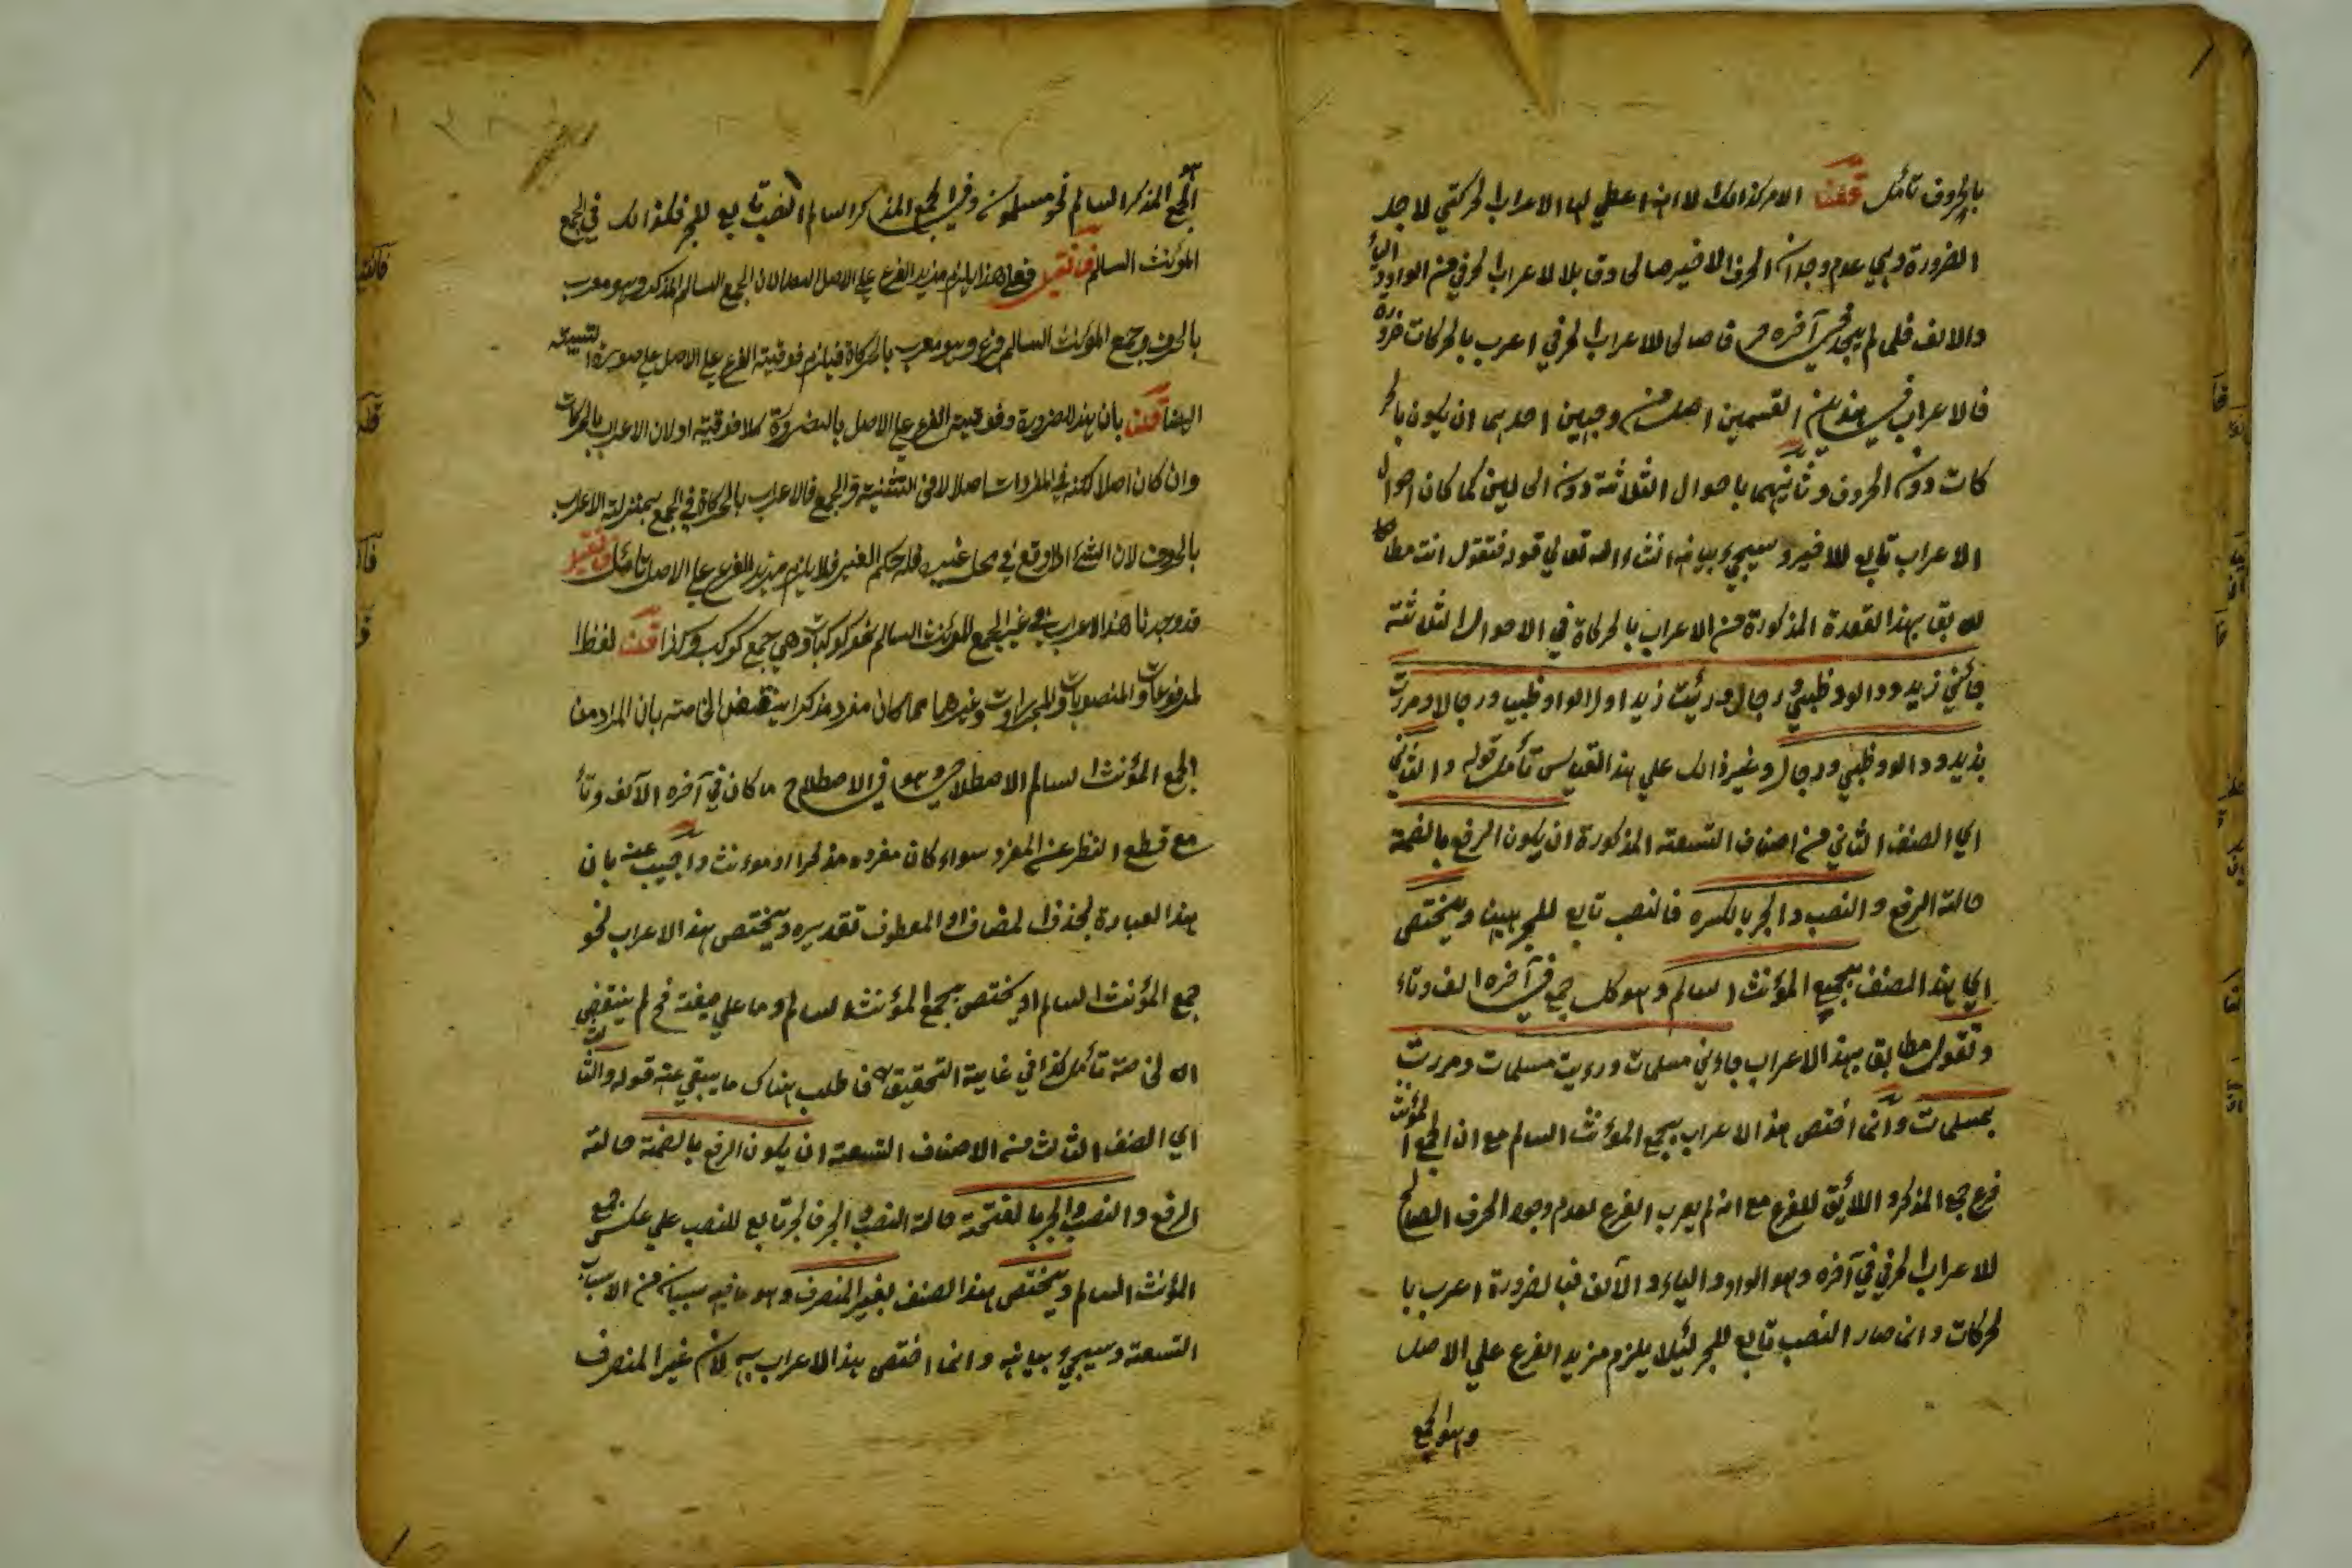 بالحروف تأمل قلنا الامر كذالك لا انه اعطي لها الاعراب الحركتي لاجل
الضرورة وهي عدم وجدان الحرف الاخير صالحا وقابلا لاعراب الحرفي من الواو والياء
والالف فلما لم يجد في آخره حرفا صالحا للاعراب الحرفي اعرب بالحركات ضرورة
فالاعراب في هذين القسمين اصل من وجهين احدهما ان يكون بالحر
كات دون الحروف وثانيهما باحوال الثلاثة دون الحالين كما كان احوال
الاعراب تابع للاخير وسيجيء بيانه انشاء الله تعالي قوله فتقول انت مطا
بق بهذا القعدة المذكورة من الاعراب بالحركاة في الاحوال الثلاثة
جائني زيد ودالو وظبي ورجال ورئيت زيدا ودالوا وظبيا ورجالا ومررت
بزيد ودالو وظبي ورجال وغير ذالك علي هذا القياس تأمل قوله والثاني
اي الصنف الثاني من اصناف التسعة المذكورة ان يكون الرفع بالضمة
حالة الرفع والنصب والجر بالكسره فالنصب تابع للجر ههنا ويختص
اي هذا الصنف بجمع المؤنث السالم وهو كل جمع في آخره الف وتاء
وتقول مطابق بهذا الاعراب جاءني مسلمات ورءيت مسلمات ومررت
بمسلمات وانما أختص هذا الاعراب بجمع المؤنث السالم مع ان الجمع المؤنث
فرع جمع المذكر واللائق للفرع مع انه لم يعرب الفرع لعدم وجود الحرف الصالح
للاعراب الحرفي في آخره وهو الواو والياء والألف فبالضرورة اعرب با
لحركات وانما صار النصب تابع للجر لئيلا يلزم مزيد الفرع علي الاصل
وهو الجمع
الجمع المذكر السالم نحو مسلمون وفي الجمع المذكر السالم النصب تابع للجر فكذالك في الجمع
المؤنث السالم فان قيل فعلي هذا يلزم مزيد الفرع علي الاصل لان الجمع السالم المذكر وهو معرب
بالحرف وجمع المؤنث السالم فرع وهو معرب بالحركاة فيلزم فوقية الفرع علي الاصل علي صورة
ايضا قلنا بأن هذا لضرورة وفوقية الفرع علي الاصل بالضرورة كلا فوقية او لان الاعراب بالحركات
وان كان اصلا لكنه في المفردات اصلا لا في التثنية والجمع فالاعراب بالحركاة في الجمع بمنزلة الاعراب
بالحروف لان الشيء اذا وقع في محل غيره فله حكم الغير فلا يلزم مزيد الفرع علي الاصل تأمل فان قيل
قد وجدنا هذا الاعراب في غير الجمع المؤنث السالم نحو كوكبات وهي جمع كوكب وكذا قلنا لفظ ا
لمرفوعات والمنصوبات والمجرورات وغيرهما مما كان مفرده مذكرا ينتقض الخاصته بان المراد من
الجمع المؤنث السالم الاصطلاحي وهو في الاصطلاح ما كان في آخره الآلف وتأ
مع قطع النظر عن المفرد سواء كان مفرده مذكرا او موءنث واجيب عنه بان
هذا العبارة بحذف المضاف او المعطوف تقديره ويختص هذا الاعراب نحو
جمع المؤنث السالم او يختص بجمع المؤنث السالم وما علي صيغة فح لم ينتقض
الخاصته تأمل كذا في غاية التحقيق فاطلب هناك ما يبقي عنه قوله والثالث
اي الصنف الثالث من الاصناف التسعة ان يكون الرفع بالضمة حالة
الرفع والنصب والجر بالفتحة حالة النصب والجر فالجر تابع للنصب علي عكس جمع
المؤنث السالم ويختص هذا الصنف بغير المنصرف وهو ما فيه سببان من الاسباب
التسعة وسيجيء بيانه وانما اختص بهذا الاعراب به لان غير المنصرف